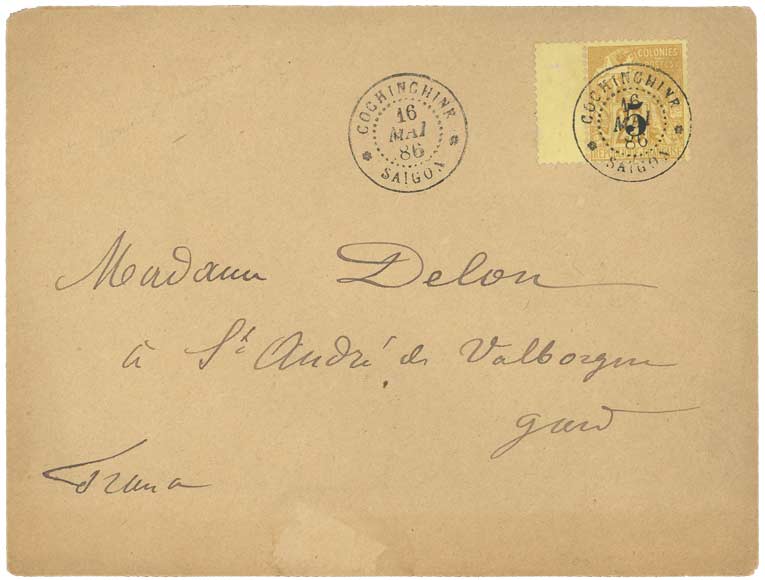 COCHINCHINE
16
MAI
86
SAIGON
COLONIES
5
COCHINCHINE
16
MAI
86
SAIGON
Madame Delon
à St. André de Valborgne
gard
France